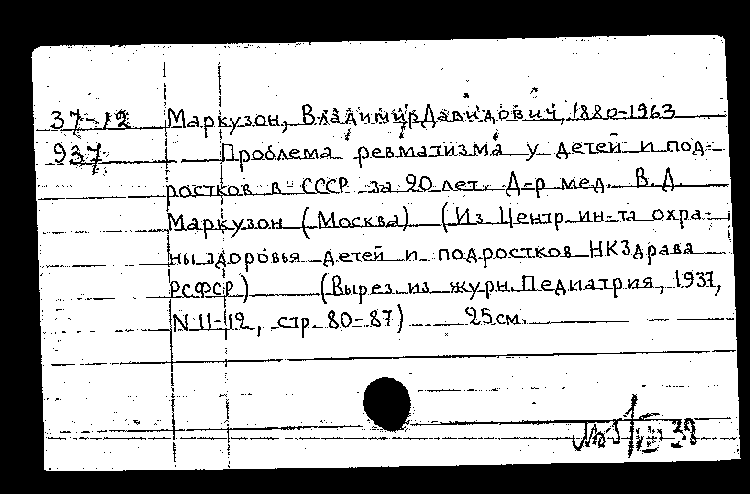 37-12 Маркузон, Владимир Давидович, 1880-1963
937 Проблема ревматизма у детей и под-
ростков в СССР за 20 лет. Д-р мед. В.Д.
Маркузон (Москва) (Из Центр. ин-та охра-
ны здоровья детей и подростков НКЗдрава
РСФСР) (Вырез. из журн. Педиатрия, 1937,
N 11-12, стр. 80-87) 25см.
38